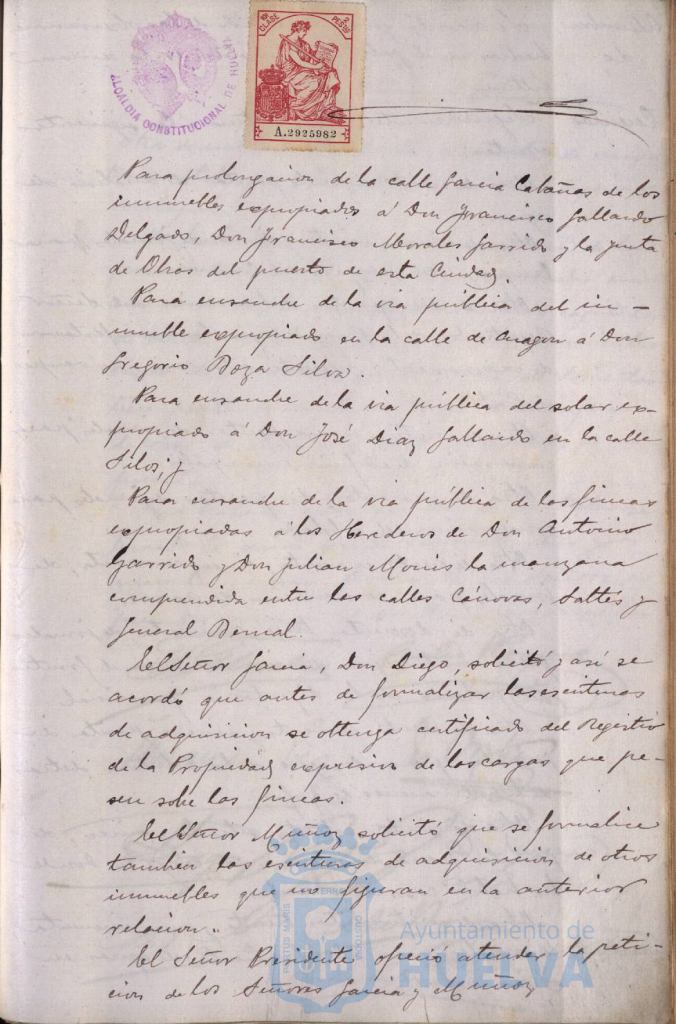 ALCALDIA CONSTITUCIONAL DE HUELVA
CLASE 2 PESETAS
A.2925982
Para prolongacion de la calle Garcia Cabañas de los
inmuebles expropiados á Don Francisco Gallardo
Delgado, Don Francisco Morales Garrido y la Junta
de Obras del puerto de esta Ciudad.
Para ensanche de la via pública del in-
mueble expropiado en la calle de Aragon á Don
Gregorio Daza Silos.
Para ensanche de la via pública del solar ex-
propiado á Don José Diaz Gallardo en la calle
Silos; y
Para ensanche de la via pública de las fincas
expropiadas á los Herederos de Don Antonio
Garrido y Don Julian Monis la manzana
comprendida entre las calles Cánovas, Saltés y
General Bernal.
El Señor Garcia, Don Diego, solicitó y asi se
acordó que antes de formalizar las escrituras
de adquisicion se obtenga certificado del Registro
de la Propiedad expresivo de las cargas que pe-
sen sobre las fincas.
El Señor Muñoz solicitó que se formalice
tambien las escrituras de adquisicion de otros
inmuebles que no figuran en la anterior
relacion.
El Señor Presidente ofreció atender la peti-
cion de los Señores Garcia y Muñoz
Ayuntamiento de
HUELVA